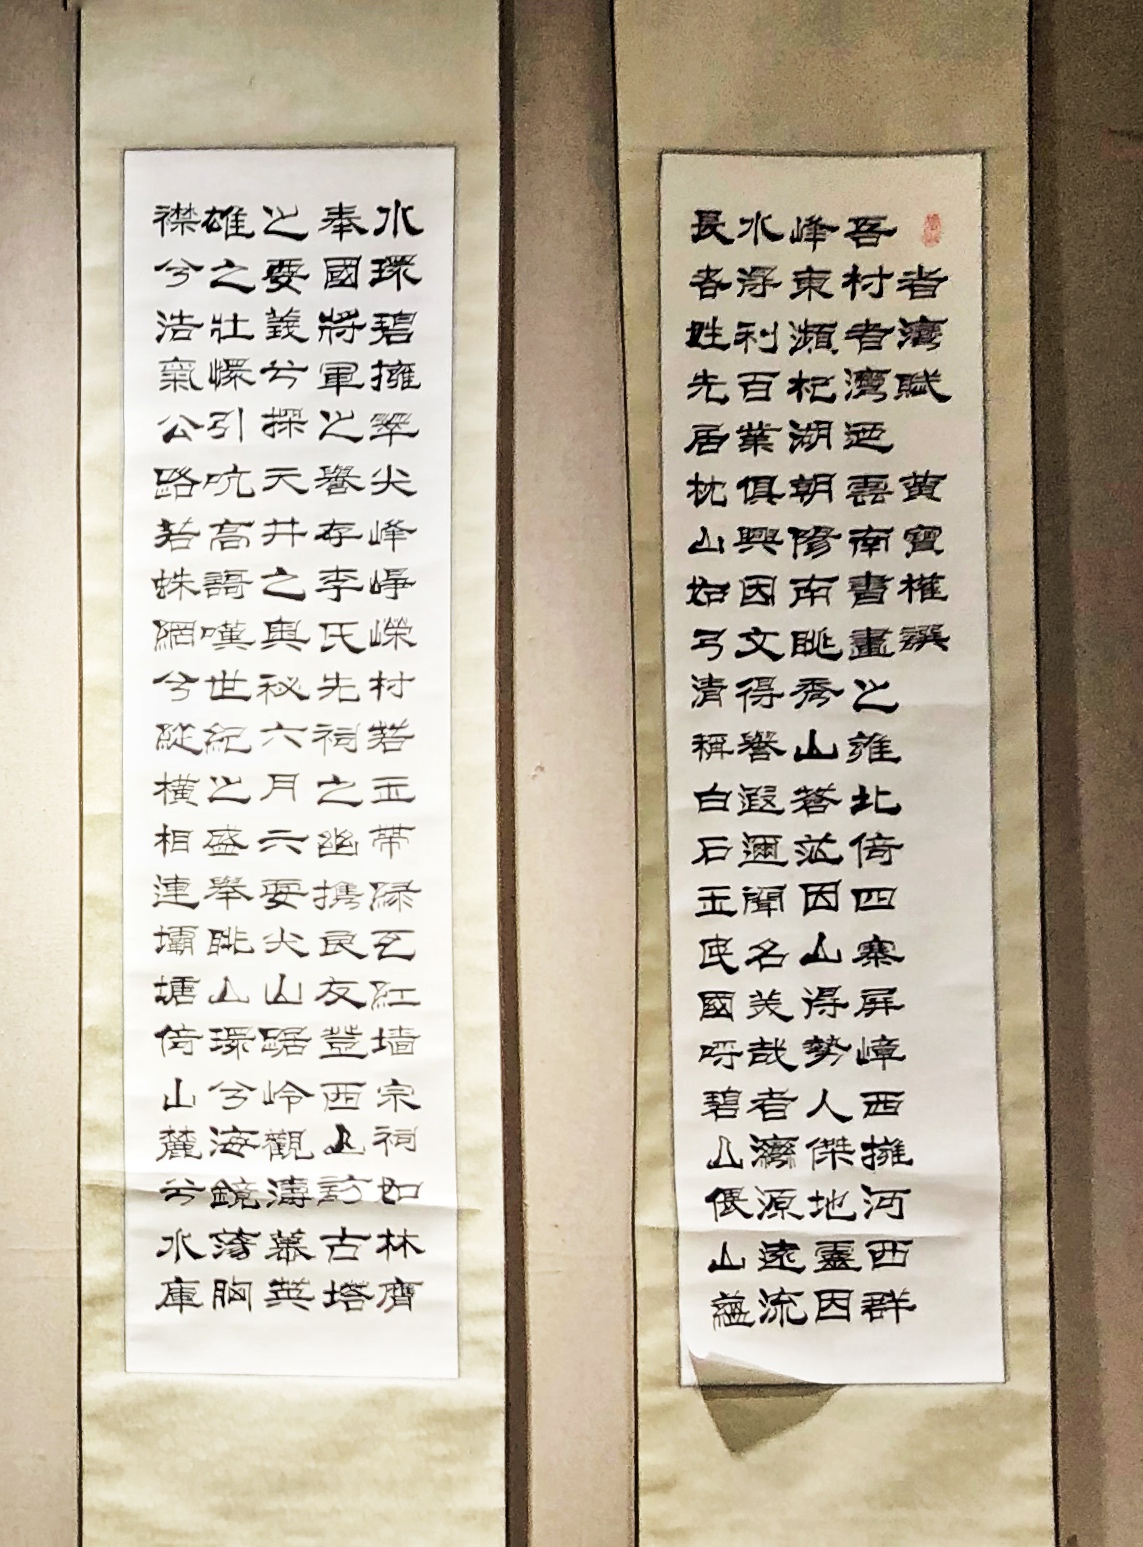 者灣賦 黃寶權撰
吾村者灣迺雲南書畫之雅北倚四寨屏嶂西擁河西群
峰東瀕杞湖朝陽南眺秀山蒼茫因山得勢人傑地靈因
水浮利百業俱興因文得譽遐邇聞名美哉者灣源遠流
長各姓先居枕山始弓清稱白石玉民國呼碧山偎山蘊
水環碧擁翠尖峰崢嶸村若玉帶綠瓦紅墻宗祠如林齊
奉國將軍之譽存李氏先祠之幽攜良友登西山訪古塔
之要義兮探天井之奧秘六月六耍尖山踞岭觀濤慕英
雄之壯懷引吭高謌嘆世紀之盛舉眺山環兮海鏡蕩胸
襟兮浩氣公路若蛛網兮縱橫相連壩塘倚山麓兮水庫